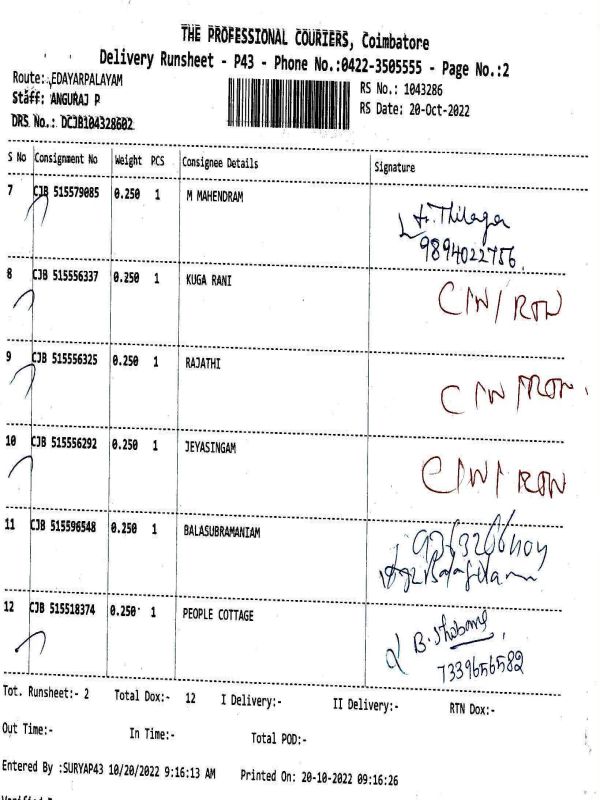 THE PROFESSIONAL COURIERS, Coimbatore
Delivery Runsheet - P43 - Phone No.:0422-3505555 - Page No.:2
Route: EDAYARPALAYAM
RS No.: 1043286
Staff: ANGURAJ P
RS Date: 20-Oct-2022
DRS No.: DCJB104328602
S No Consignment No Weight PCS Consignee Details Signature
7 CJB 515579085 0.250 1 M MAHENDRAM
Thilaga
9894022756
8 CJB 515556337 0.250 1 KUGA RANI C/N/RTN
9 CJB 515556325 0.250 1 RAJATHI C/N/RTN
10 CJB 515556292 0.250 1 JEYASINGAM C/N/RTN
11 CJB 515596548 0.250 1 BALASUBRAMANIAM
12 CJB 515518374 0.250 1 PEOPLE COTTAGE
B. Shobana
7339656582
Tot. Runsheet:- 2 Total Dox:- 12 I Delivery:- II Delivery:- RTN Dox:-
Out Time:- In Time:- Total POD:-
Entered By :SURYAP43 10/20/2022 9:16:13 AM Printed On: 20-10-2022 09:16:26